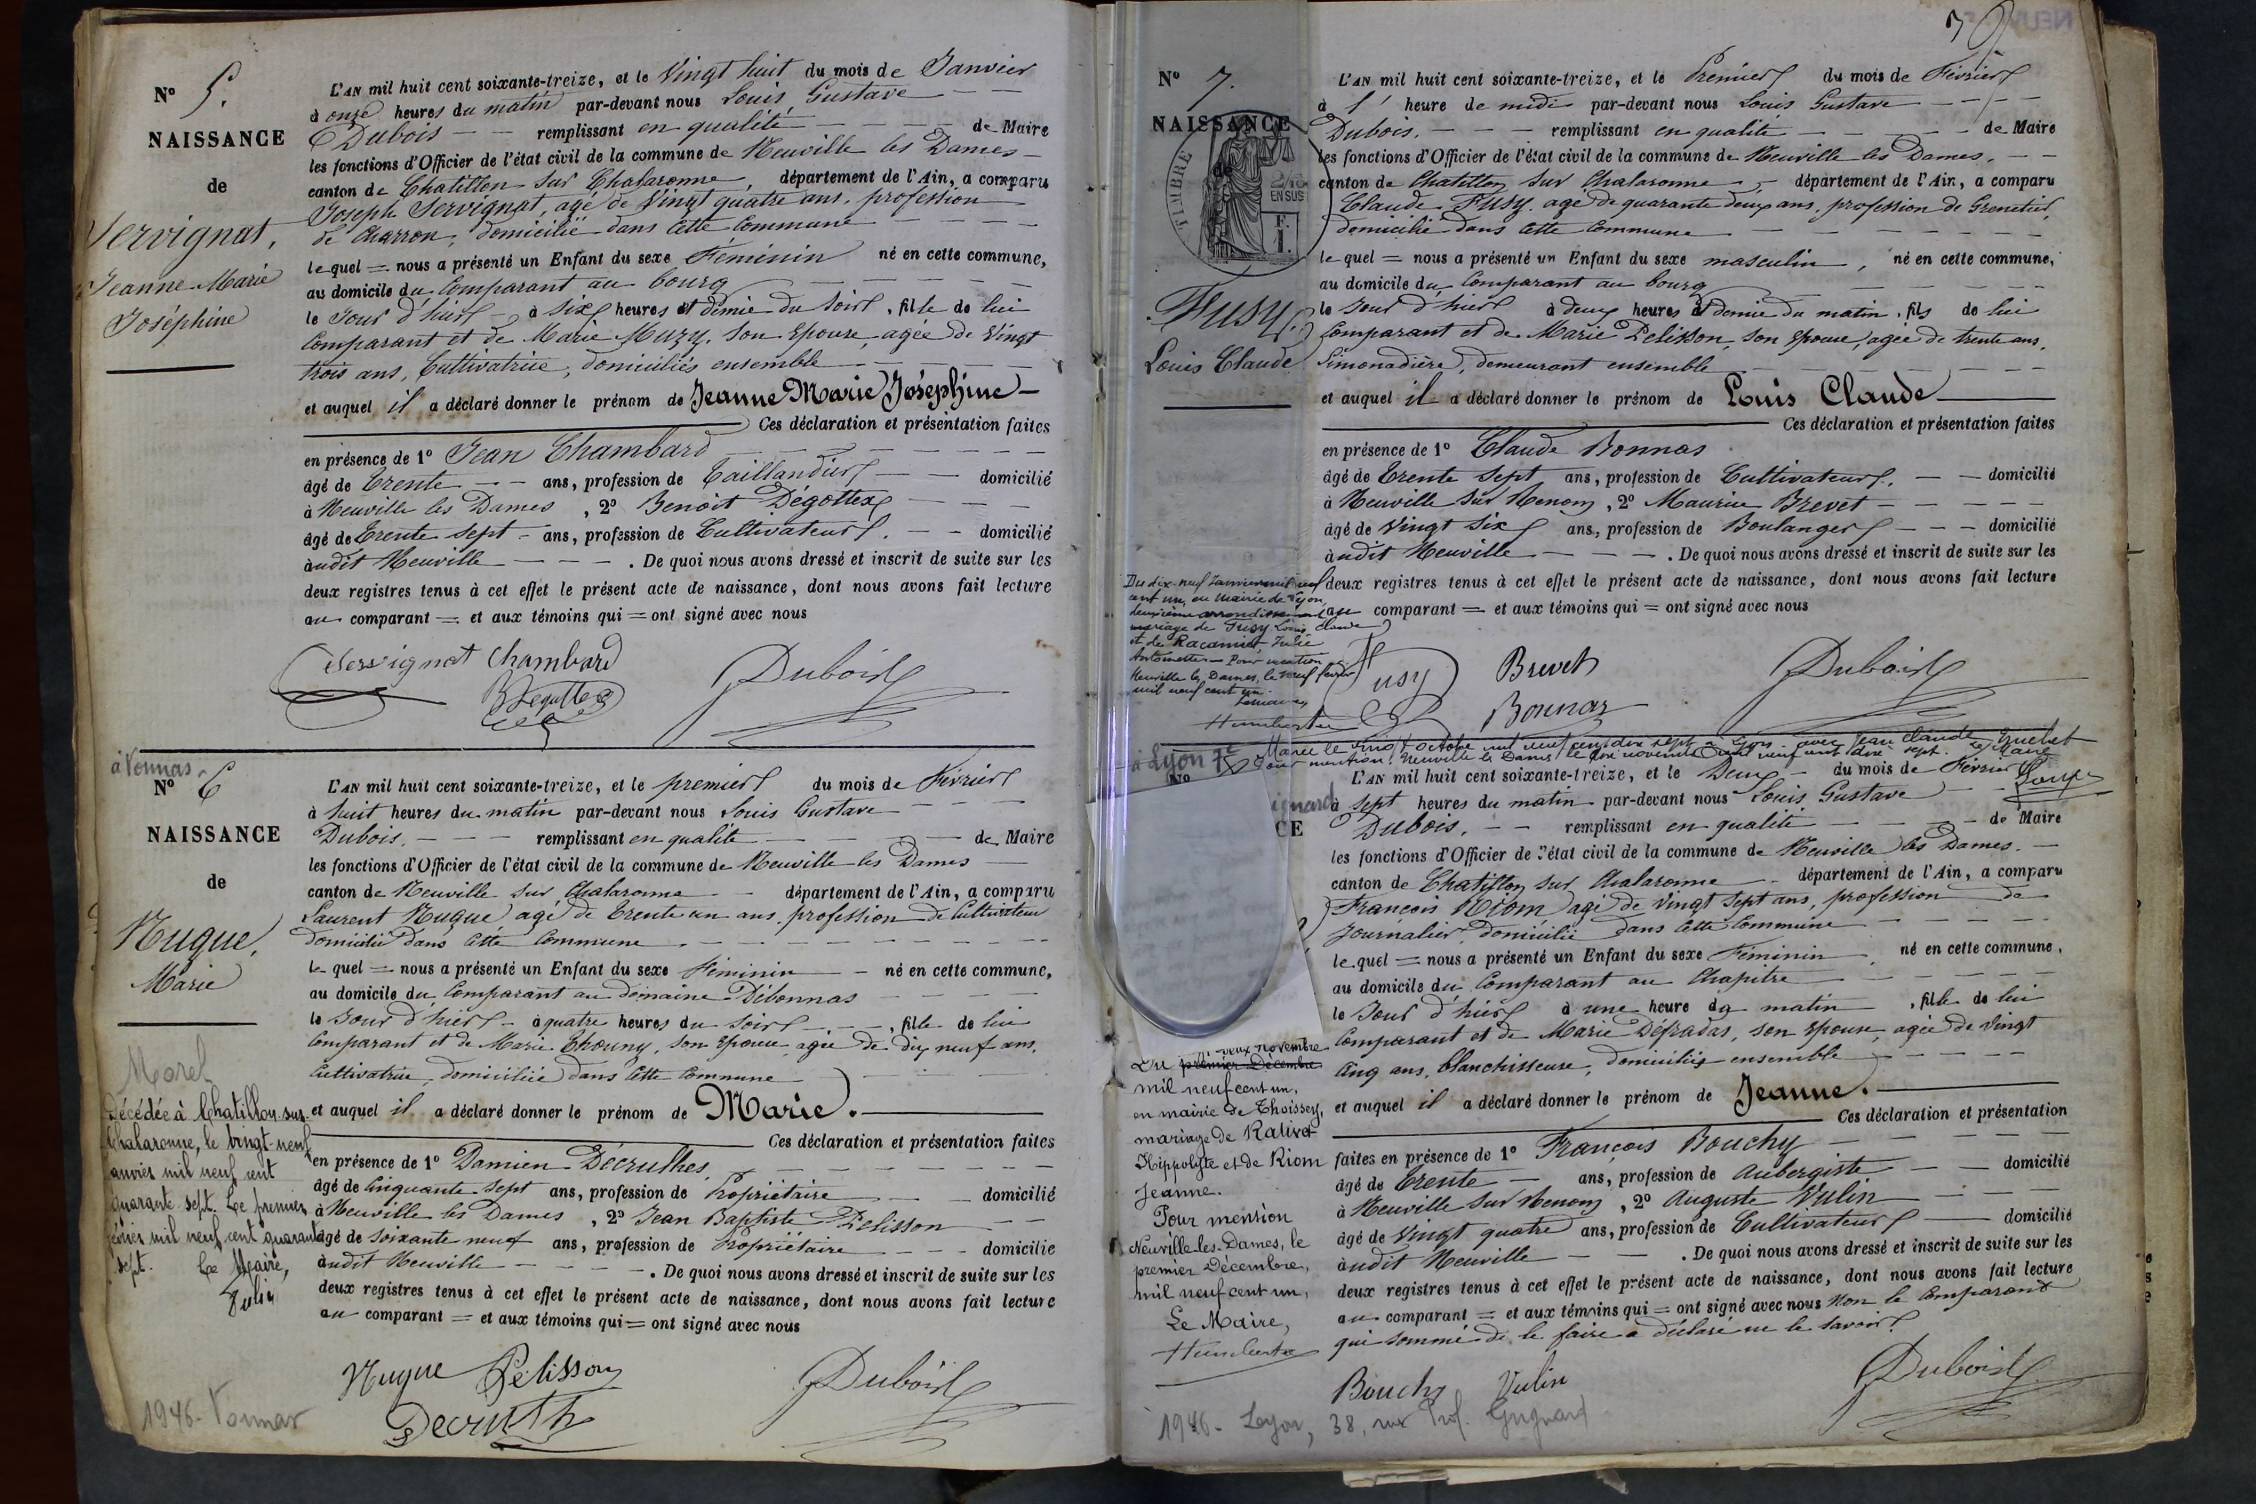 Nº 5.
NAISSANCE
de
Servignat,
Jeanne Marie
Joséphine
L'AN mil huit cent soixante-treize, et le Vingt huit du mois de Janvier
à onze heures du matin par-devant nous Louis, Gustave
Dubois remplissant en qualité de Maire
les fonctions d'Officier de l'état civil de la commune de Neuville les Dames
canton de Chatillon sur Chalaronne, département de l'Ain, a comparu
Joseph Servignat, agé de Vingt quatre ans, profession
de Charron, domicilié dans cette Commune
le quel = nous a présenté un Enfant du sexe Féminin né en cette commune,
au domicile du Comparant au bourg
le Jour d'hier à six heures et demie du soir, fille de lui
Comparant et de Marie Muzy, son Epouse, agée de Vingt
trois ans, Cultivatrice, domiciliés ensemble
et auquel il a déclaré donner le prénom de Jeanne Marie Joséphine
Ces déclaration et présentation faites
en présence de 1º Jean Chambard
âgé de Trente ans, profession de Taillandier domicilié
à Neuville les Dames, 2º Benoit Dégottex
âgé de Trente sept ans, profession de Cultivateur. domicilié
àudit Neuville. De quoi nous avons dressé et inscrit de suite sur les
deux registres tenus à cet effet le présent acte de naissance, dont nous avons fait lecture
au comparant = et aux témoins qui = ont signé avec nous
Servignat Chambard
Dubois
à Vonnas
Nº 6
NAISSANCE
de
Nugue,
Marie
Morel
Décédée à Chatillon-sur-
Chalaronne, le vingt-neuf
janvier mil neuf cent
quarante sept. Le premier
février mil neuf cent quarante
sept. Le Maire,
Vulin
L'AN mil huit cent soixante-treize, et le premier du mois de Février
à huit heures du matin par-devant nous Louis Gustave
Dubois. remplissant en qualité de Maire
les fonctions d'Officier de l'état civil de la commune de Neuville les Dames
canton de Neuville sur Chalaronne département de l'Ain, a comparu
Laurent Nugue agé de Trente un ans, profession de Cultivateur
domicilié dans cette Commune
le quel = nous a présenté un Enfant du sexe Féminin né en cette commune,
au domicile du Comparant au domaine Débonnas
le Jour d'hier à quatre heures du Soir, fille de lui
Comparant et de Marie Chouny, son Epouse, agée de dix neuf ans,
Cultivatrice, domiciliée dans cette Commune
et auquel il a déclaré donner le prénom de Marie.
Ces déclaration et présentation faites
en présence de 1º Damien Décruthes,
âgé de Cinquante Sept ans, profession de Propriétaire domicilié
à Neuville les Dames, 2º Jean Baptiste Pelisson
âgé de Soixante neuf ans, profession de Propriétaire domicilié
àudit Neuville. De quoi nous avons dressé et inscrit de suite sur les
deux registres tenus à cet effet le présent acte de naissance, dont nous avons fait lecture
au comparant = et aux témoins qui = ont signé avec nous
Nugue Pélisson
Dubois
Decruth
1946 - Vonnas
Nº 7.
NAISSANCE
de
TIMBRE
2/10
EN SUS
Fusy,
Louis Claude
L'AN mil huit cent soixante-treize, et le Premier du mois de Février
à l' heure de midi par-devant nous Louis Gustave
Dubois. remplissant en qualité de Maire
les fonctions d'Officier de l'état civil de la commune de Neuville les Dames.
canton de Chatillon sur Chalaronne, département de l'Ain, a comparu
Claude Fusy, agé de quarante deux ans, profession de Grenetier,
domicilié dans cette Commune
le quel = nous a présenté un Enfant du sexe masculin, né en cette commune,
au domicile du Comparant au bourg
le Jour d'hier à deux heures et demie du matin, fils de lui
Comparant et de Marie Pelisson, son Epouse, agée de trente ans,
Limonadière, demeurant ensemble
et auquel il a déclaré donner le prénom de Louis Claude
Ces déclaration et présentation faites
en présence de 1º Claude Bonnas
âgé de Trente Sept ans, profession de Cultivateur. domicilié
à Neuville sur Renom, 2º Maurice Brevet
âgé de Vingt six ans, profession de Boulanger domicilié
àudit Neuville. De quoi nous avons dressé et inscrit de suite sur les
deux registres tenus à cet effet le présent acte de naissance, dont nous avons fait lecture
au comparant = et aux témoins qui = ont signé avec nous
Du dix-neuf Janvier mil neuf
cent un, en mairie de Lyon,
deuxième arrondissement
mariage de Fusy Louis Claude
et de Racamier Julie
Antoinette. Pour mention
Neuville les Dames, le neuf février
mil neuf cent un.
Humberter
Fusy Brevet
Bonnas
Dubois
à Lyon 7e
Nº
CE
Mariée le vingt octobre mil neuf cent dix sept à Lyon avec Jean Claude Truchet
Pour mention. Neuville les Dames le dix novembre mil neuf cent dix sept. Le Maire
L'AN mil huit cent soixante-treize, et le Deux du mois de Février
à sept heures du matin par-devant nous Louis Gustave
Dubois. remplissant en qualité de Maire
les fonctions d'Officier de l'état civil de la commune de Neuville les Dames.
canton de Chatillon sur Chalaronne département de l'Ain, a comparu
François Riom, agé de Vingt Sept ans, profession de
Journalier, domicilié dans cette Commune
le quel = nous a présenté un Enfant du sexe Féminin, né en cette commune,
au domicile du Comparant au Chapitre
le Jour d'hier à une heure du matin, fille de lui
Comparant et de Marie Défradas, son Epouse, agée de Vingt
Cinq ans, blanchisseuse, domiciliés ensemble
et auquel il a déclaré donner le prénom de Jeanne.
Ces déclaration et présentation
faites en présence de 1º François Bouchy
âgé de Trente ans, profession de Aubergiste domicilié
à Neuville sur Renom, 2º Auguste Vulin
âgé de Vingt quatre ans, profession de Cultivateur domicilié
àudit Neuville. De quoi nous avons dressé et inscrit de suite sur les
deux registres tenus à cet effet le présent acte de naissance, dont nous avons fait lecture
au comparant = et aux témoins qui = ont signé avec nous Non le Comparant
qui sommé de le faire a déclaré ne le savoir.
Du premier Décembre deux novembre
mil neuf cent un,
en mairie de Thoissey,
mariage de Rativet
Hippolyte et de Riom
Jeanne.
Pour mention
Neuville-les-Dames, le
premier Décembre,
mil neuf cent un,
Le Maire,
Humberter
Bouchy Vulin
Dubois
1946 - Lyon, 38, rue Prof. Grignard